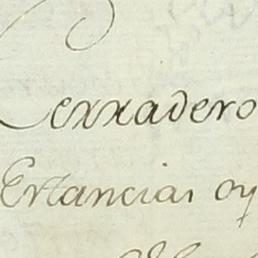 Cerradero
Estancias oy